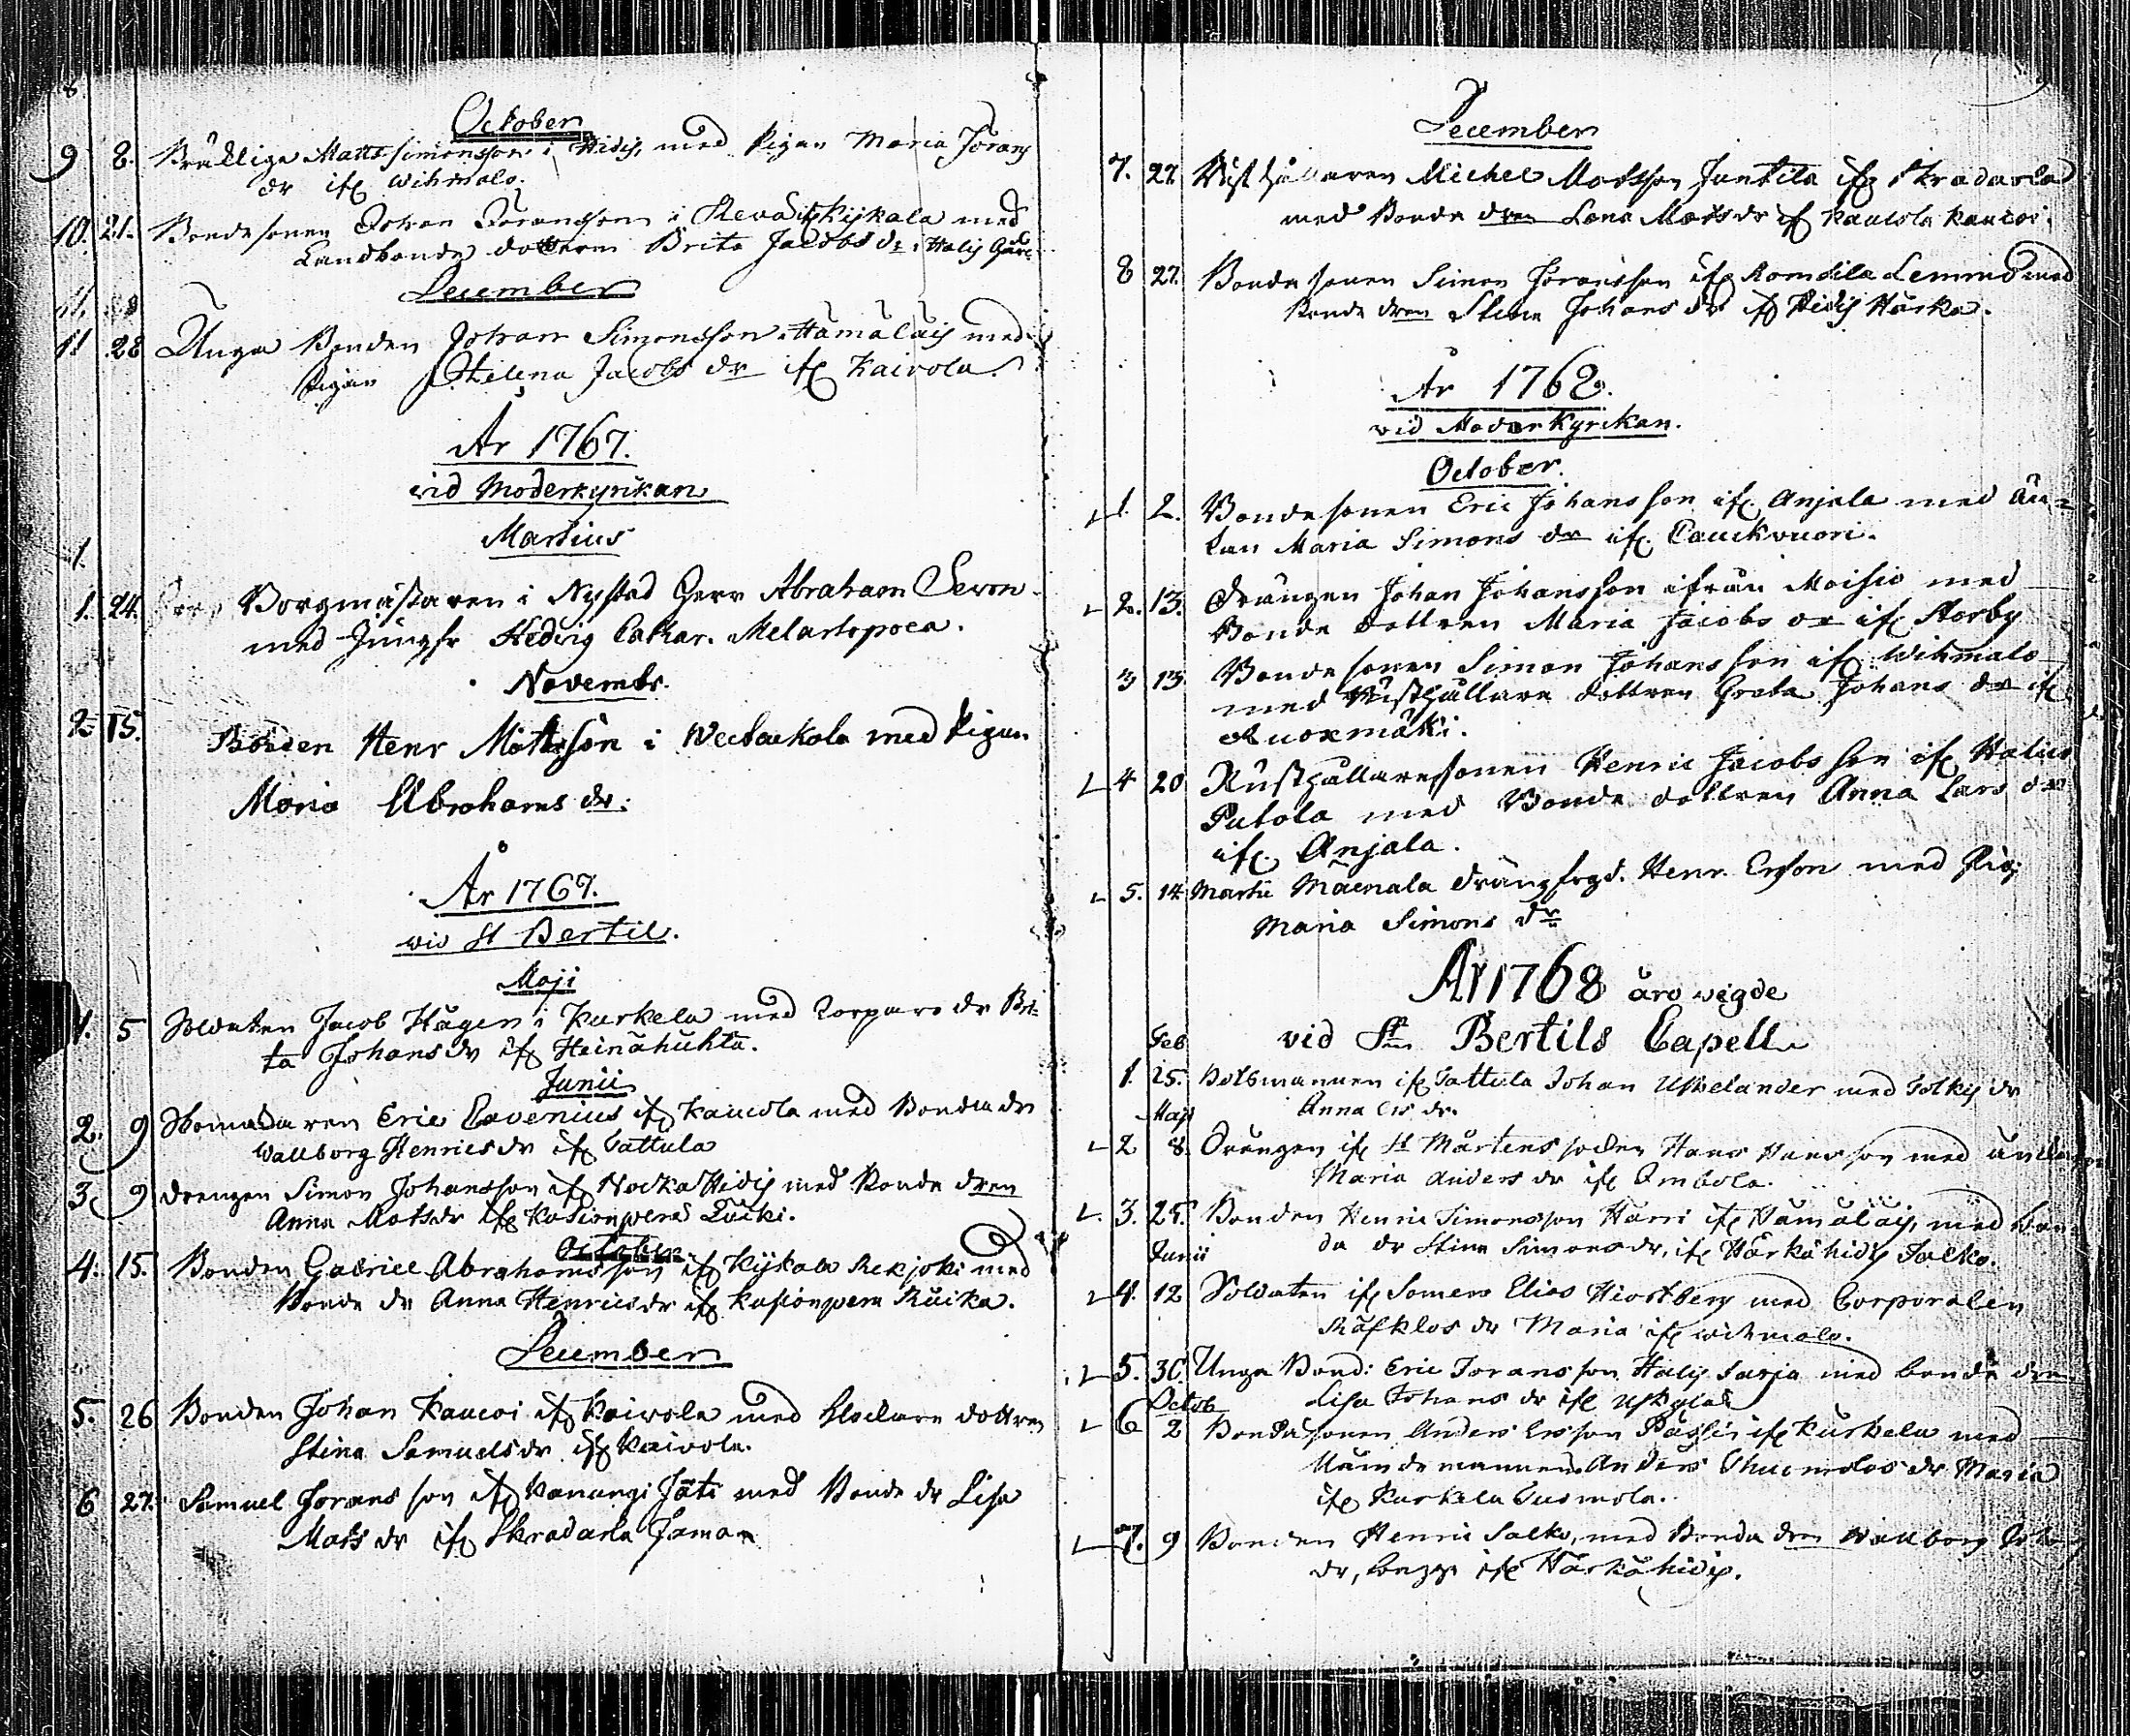 October
9 8. Matts Simonsson i Hidis, med Pigan Maria Jörans
dr ifr Wihmalo.
10. 21. Bondesonen Johan Göransson i Rekijoki Kijkala med
Landbonde dottren Brita Jacobs dr i Halis Gård
December
11.
11 28 Unga Bonden Johan Simonsson i Hämäläis med
Pigan Helena Jacobs dr ifr Kaivola.
År 1767.
vid Moderkyrkan
Martius
1.
1. 24. Borgmästaren i Nystad Herr Abraham Sevon
med Jungfr Hedvig Cathar. Melartopoea.
Novembr.
2 15. Bonden Henr Mattsson i med Pigan
Maria Abrahams dr.
År 1767.
wid St Bertil.
Maji
1. 5 Soldaten Jacob Hägen i Kurkela med Torpare dr Bri-
ta Johans dr ifr Heinähuhta.
Junii
2. 9 Eric Eavenius ifr Kaucola med Bonde dr
Wallborg Henrics dr ifr Tattula
3 9 Drengen Simon Johansson ifr Hidis med Bonde dren
Anna Mats dr ifr Kosionperä
October
4. 15. Bonden Gabriel Abrahamsson ifr Kijkala Rekijoki med
Bonde dr Anna Henrics dr ifr Kosionperä
December
5. 26 Bonden Johan Kaucoi ifr Kaivola med Klockare dottren
Stina Samuels dr ifr Kaivola.
6 27. Samuel Jöransson ifr Kanungi Jäti med Bonde dr Lisa
Mats dr ifr Skradarla
December
7. 27. Rusthållaren Michel Matsson Juntila ifr Skradarla
med Bonde dren Lena Mats dr ifr Kaucola Kaucoi.
8 27. Bondesonen Simon Jöransson ifr Romsila Lemmo med
Bonde dren Stina Johans dr ifr Hidis Härka.
År 1768.
vid Moderkyrkan.
October.
1. 2. Bondesonen Eric Johansson ifr Anjala med än-
kan Maria Simons dr ifr Pauckvuori.
2. 13. Drängen Johan Johansson ifrån Moisio med
Bonde dottren Maria Jacobs dr ifr Storby
3 13. Bondesonen Simon Johansson ifr Wihmalo
med Rusthållare dottren Greta Johans dr ifr
Kuoxmäki.
4 20 Rusthållaresonen Henric Jacobsson ifr Halias
Putola med Bonde dottren Anna Lars dr
ifr. Anjala.
5. 14 Martii Mäenala dräng Henr. Ersson med Pig:
Maria Simons dr
År 1768 äro wigde
Feb vid St Bertils Capell
1. 25. Båtsmannen ifr Tattula Johan Uskelander med Tolkis dr
Maji Anna Ers dr.
2 8. Drängen ifr St Mårtens socken Hans Hansson med änkan
Maria Anders dr ifr
3. 25. Bonden Henric Simonsson Härri ifr Hämäläis, med Bon-
Junii de dr Stina Simons dr, ifr Härkähidis Salko.
4. 12 Soldaten ifr Somero Elias Hiortberg med Corporalen
Räfklos dr Maria ifr Wihmalo.
5. 30. Unga Bond: Eric Joransson Halis Sarja med bonde dren
Octob Lisa Johans dr ifr Uskyla
6 2 Bondesonen Anders Ersson ifr Kurkela med
Anders dr Maria
ifr Kurkela
7. 9 Bonden Henric Salko, med Bonde dren Wallborg
dr, begge ifr Härkähidis.